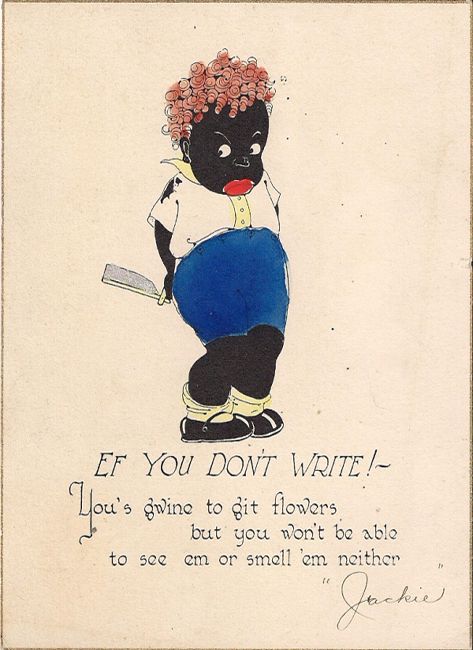 EF YOU DON'T WRITE!~
You's gwine to git flowers
but you won't be able
to see em or smell 'em neither
"Jackie"